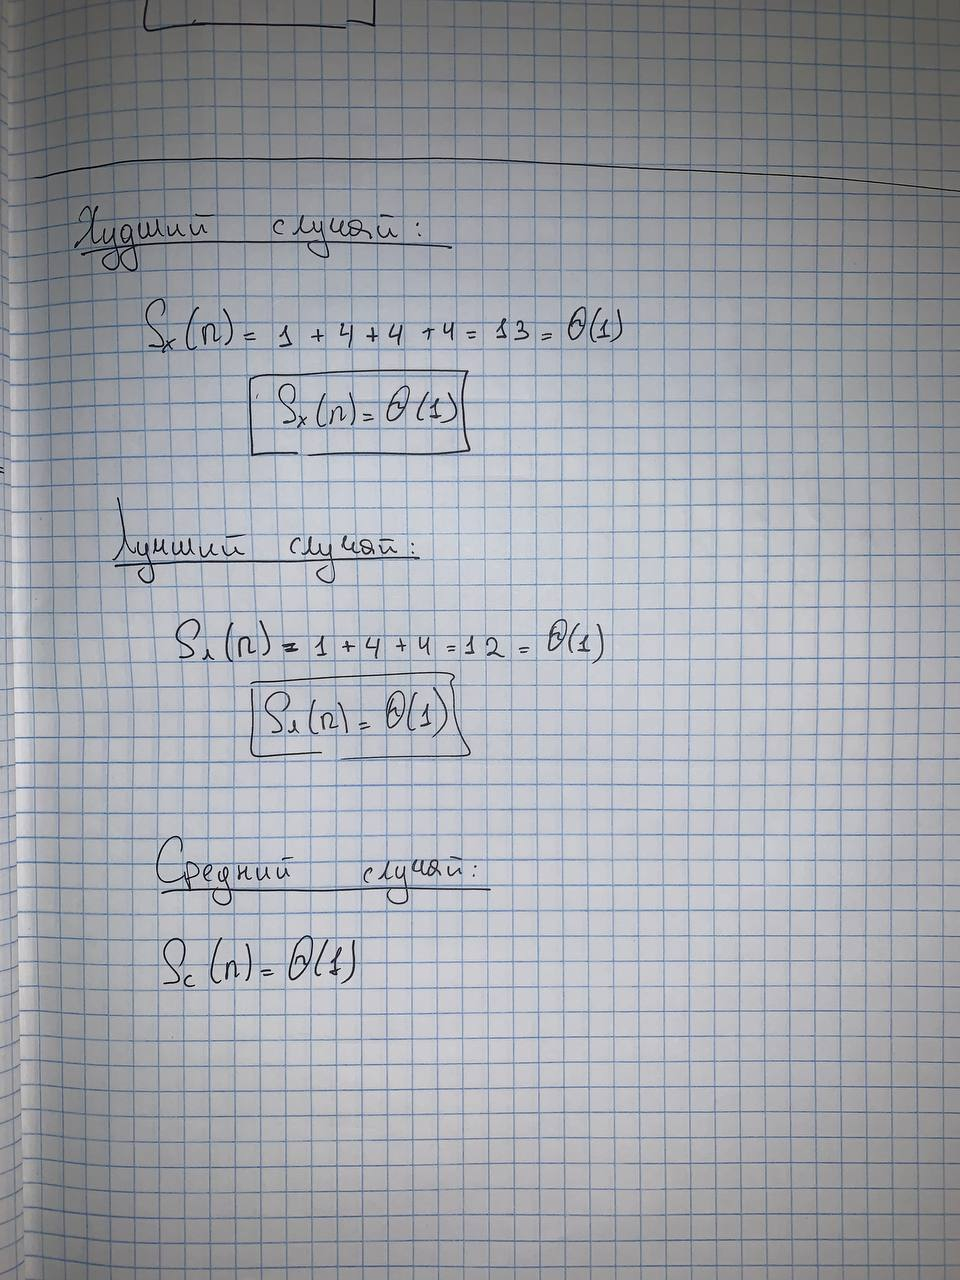 Худший случай:
Sх(n) = 1 + 4 + 4 + 4 = 13 = Θ(1)
Sх(n) = Θ(1)
Лучший случай:
Sл(n) = 1 + 4 + 4 = 12 = Θ(1)
Sл(n) = Θ(1)
Средний случай:
Sс(n) = Θ(1)